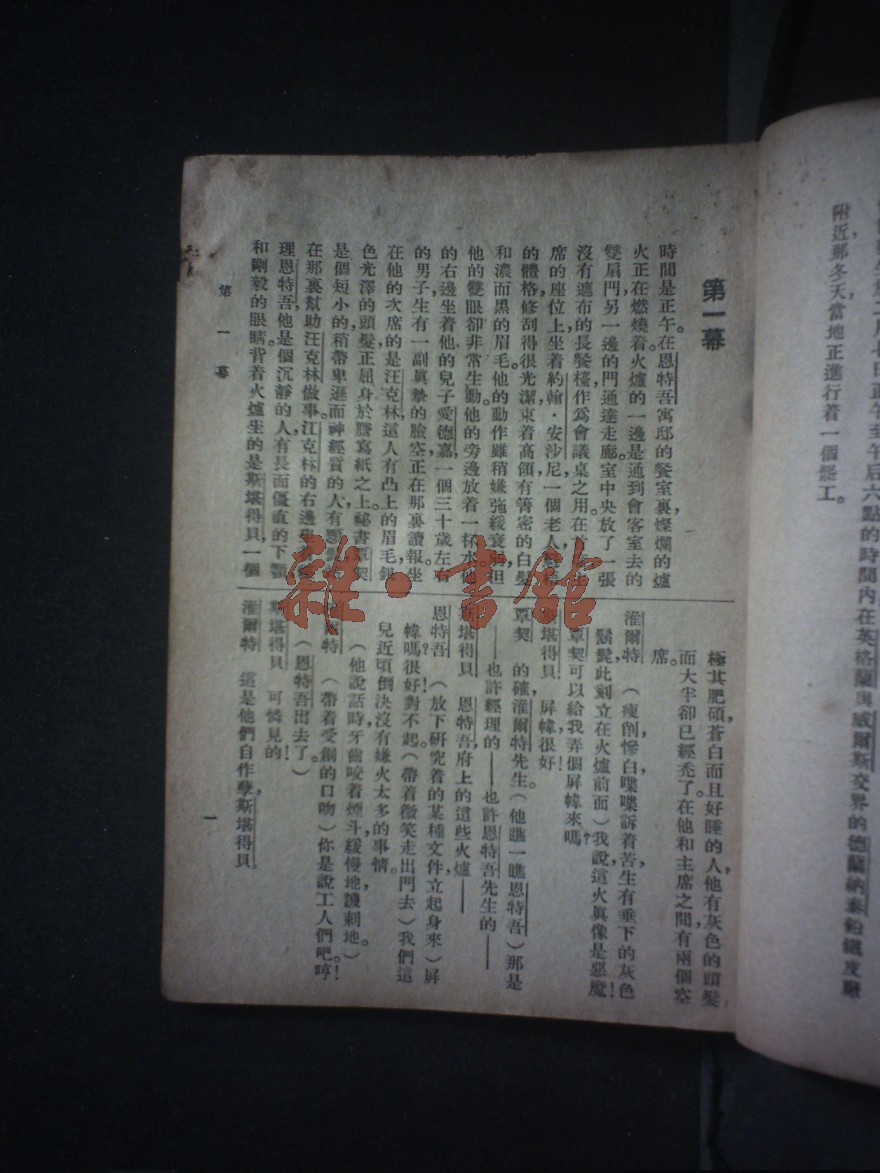 七日正午至午后六點的時間內在英格蘭與威爾斯交界的德蘭納泰鉛鐵皮廠
附近，那冬天當地正進行着一個罷工。
第一幕
時間是正午。在恩特吾寓邸的餐室裏，燦爛的爐
火正在燃燒着，火爐的一邊是通到會客室去的
雙扇門，另一邊的門通達走廊。室中央放了一張
沒有遮布的長餐檯，作爲會議桌之用。在首席主
席的座位上坐着約翰·安沙尼，一個老人，
的體格，修刮得很光潔，束着高領，有着密的白髮
和濃而黑的眉毛。他的動作雖稍嫌弛緩衰弱，但
他的雙眼卻非常生動。他的旁邊放着一杯水。他
的右邊坐着他的兒子愛德嘉，一個三十歲左右
的男子，生有一副眞摯的臉，正在那裏讀報。坐
在他的次席的是汪克林，這人有凸上的眉毛，銀
色光澤的頭髮，正屈身於謄寫紙之上。祕書覃契
是個短小的，稍帶卑遜而神經質的人，有
在那裏幫助汪克林做事。汪克林的右邊
理恩特吾，他是個沉靜的人，有長而僵直的下顎
和剛毅的眼睛。背着火爐坐的是斯堪得貝，一個
極其肥碩，蒼白而且好睡的人，他有灰色的頭髮，
面大半卻已經禿了。在他和主席之間有兩個空
席。
淮爾特　（瘦削，慘白，喋喋訴着苦，生有垂下的灰色
鬍髭，此刻立在火爐前面）我說，這火眞像是惡魔！
覃契，可以給我弄個屏幛來嗎？
斯堪得貝　屏幛，很好！
覃契　的確，淮爾特先生。（他瞧一瞧恩特吾）那是
——也許經理的——也許恩特吾先生的——
斯堪得貝　恩特吾，府上的這些火爐——
恩特吾　（放下研究着的某種文件，立起身來）屏
幛嗎？很好！對不起。（帶着微笑走出門去）我們這
兒近頃倒決沒有嫌火太多的事情。
（他說話時牙齒咬着煙斗，緩慢地，譏刺地。）
淮爾特　（帶着受創的口吻）你是說工人們吧。哼！
（恩特吾出去了。）
斯堪得貝　可憐見的！
淮爾特　這是他們自作孽，斯堪得貝。
第一幕
一
雜·書館